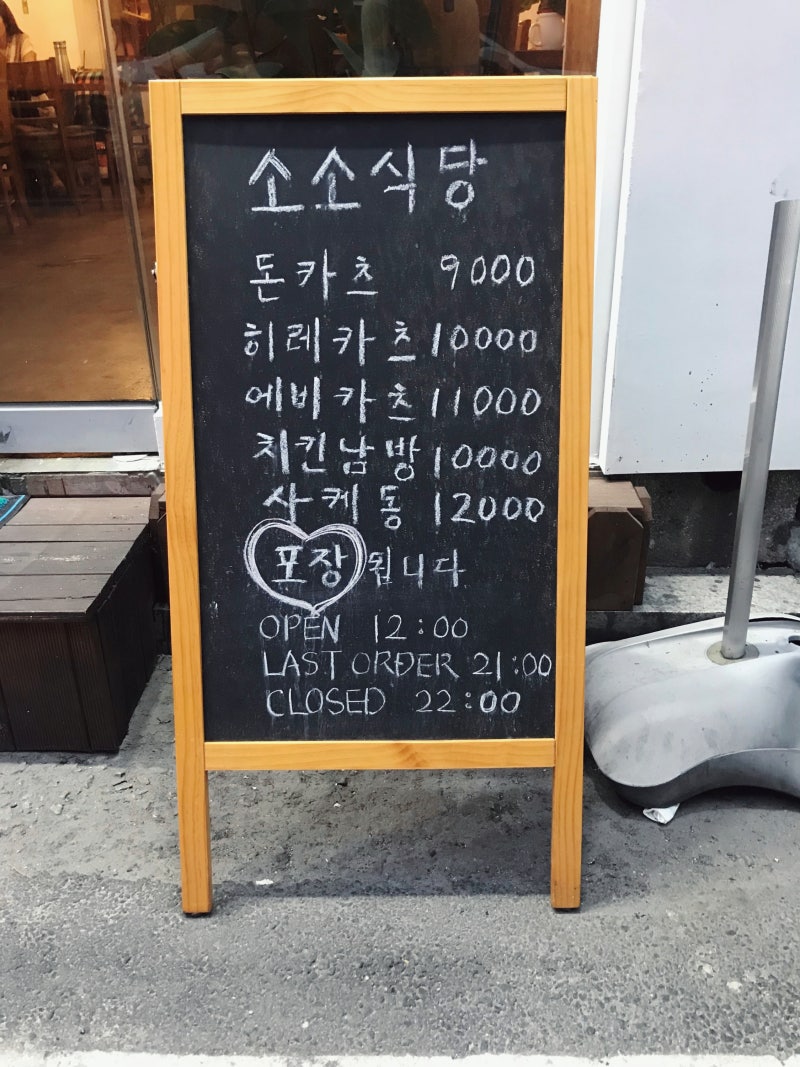 소소식당
돈카츠 9000
히레카츠 10000
에비카츠 11000
치킨남방 10000
사케동 12000
포장 됩니다
OPEN 12:00
LAST ORDER 21:00
CLOSED 22:00